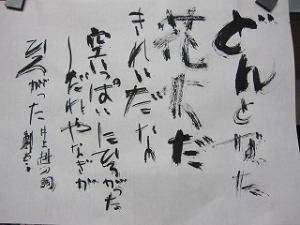 どんとなった
花火だ
きれいだな
空いっぱいにひろがった
しだれやなぎが
ひろがった